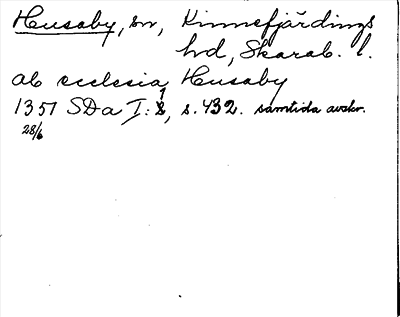 Husaby, sn, Kinnefjärdings
hd, Skarab. l.
ab ecclesia Husaby
1351 SDa I:1, s. 432. samtida avskr.
28/6